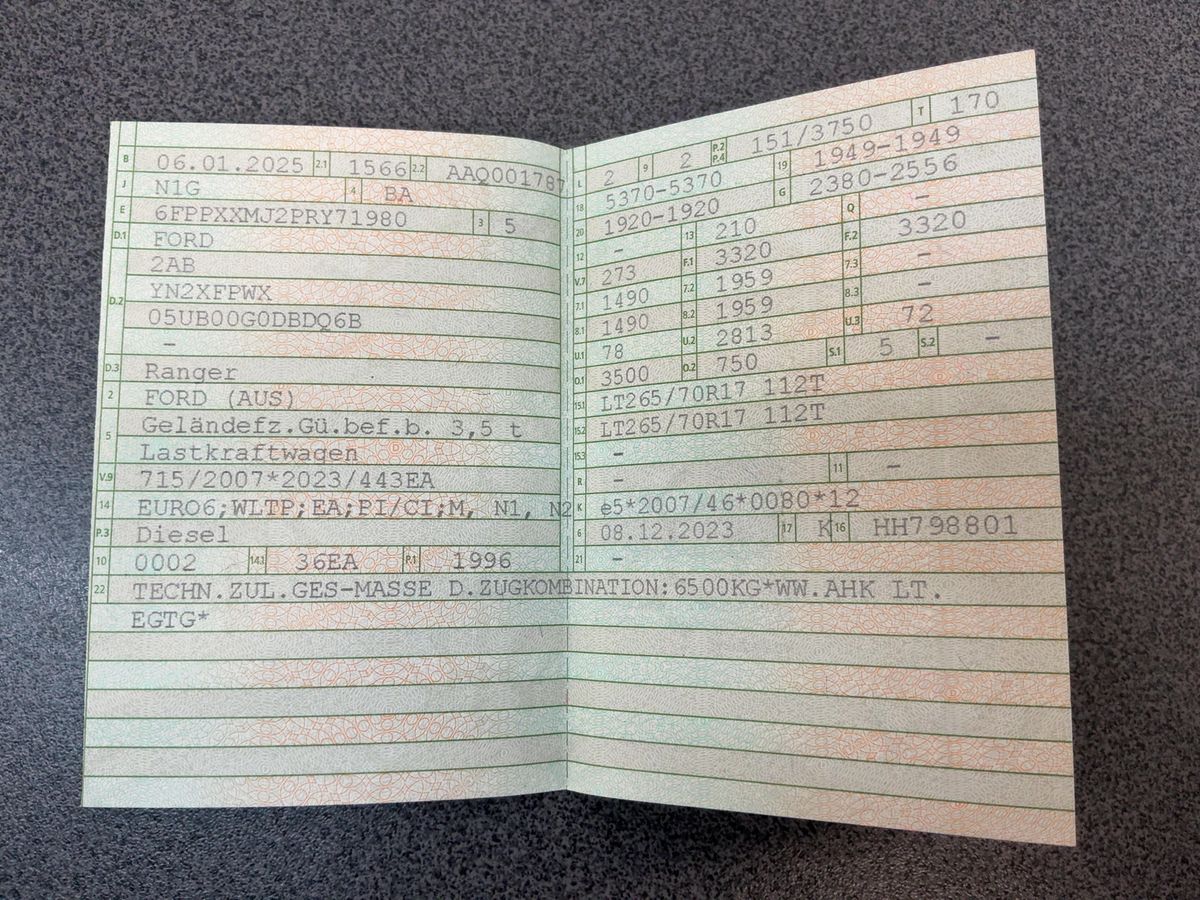 B 06.01.2025 2.1 1566 2.2 AAQ001787
J N1G 4 BA
E 6FPPXXMJ2PRY71980 3 5
D.1 FORD
2AB
D.2 YN2XFPWX
05UB00G0DBDQ6B
–
D.3 Ranger
2 FORD (AUS)
5 Geländefz.Gü.bef.b. 3,5 t
Lastkraftwagen
V.9 715/2007*2023/443EA
14 EURO6;WLTP;EA;PI/CI;M, N1, N2
P.3 Diesel
10 0002 14.1 36EA P.1 1996
L 2 9 2 P.2 P.4 151/3750 T 170
18 5370-5370 19 1949-1949
20 1920-1920 G 2380-2556
12 – 13 210 Q –
V.7 273 F.1 3320 F.2 3320
7.1 1490 7.2 1959 7.3 –
8.1 1490 8.2 1959 8.3 –
U.1 78 U.2 2813 U.3 72
O.1 3500 O.2 750 S.1 5 S.2 –
15.1 LT265/70R17 112T
15.2 LT265/70R17 112T
15.3 –
R – 11 –
K e5*2007/46*0080*12
6 08.12.2023 17 K 16 HH798801
21 –
22 TECHN.ZUL.GES-MASSE D.ZUGKOMBINATION:6500KG*WW.AHK LT.
EGTG*